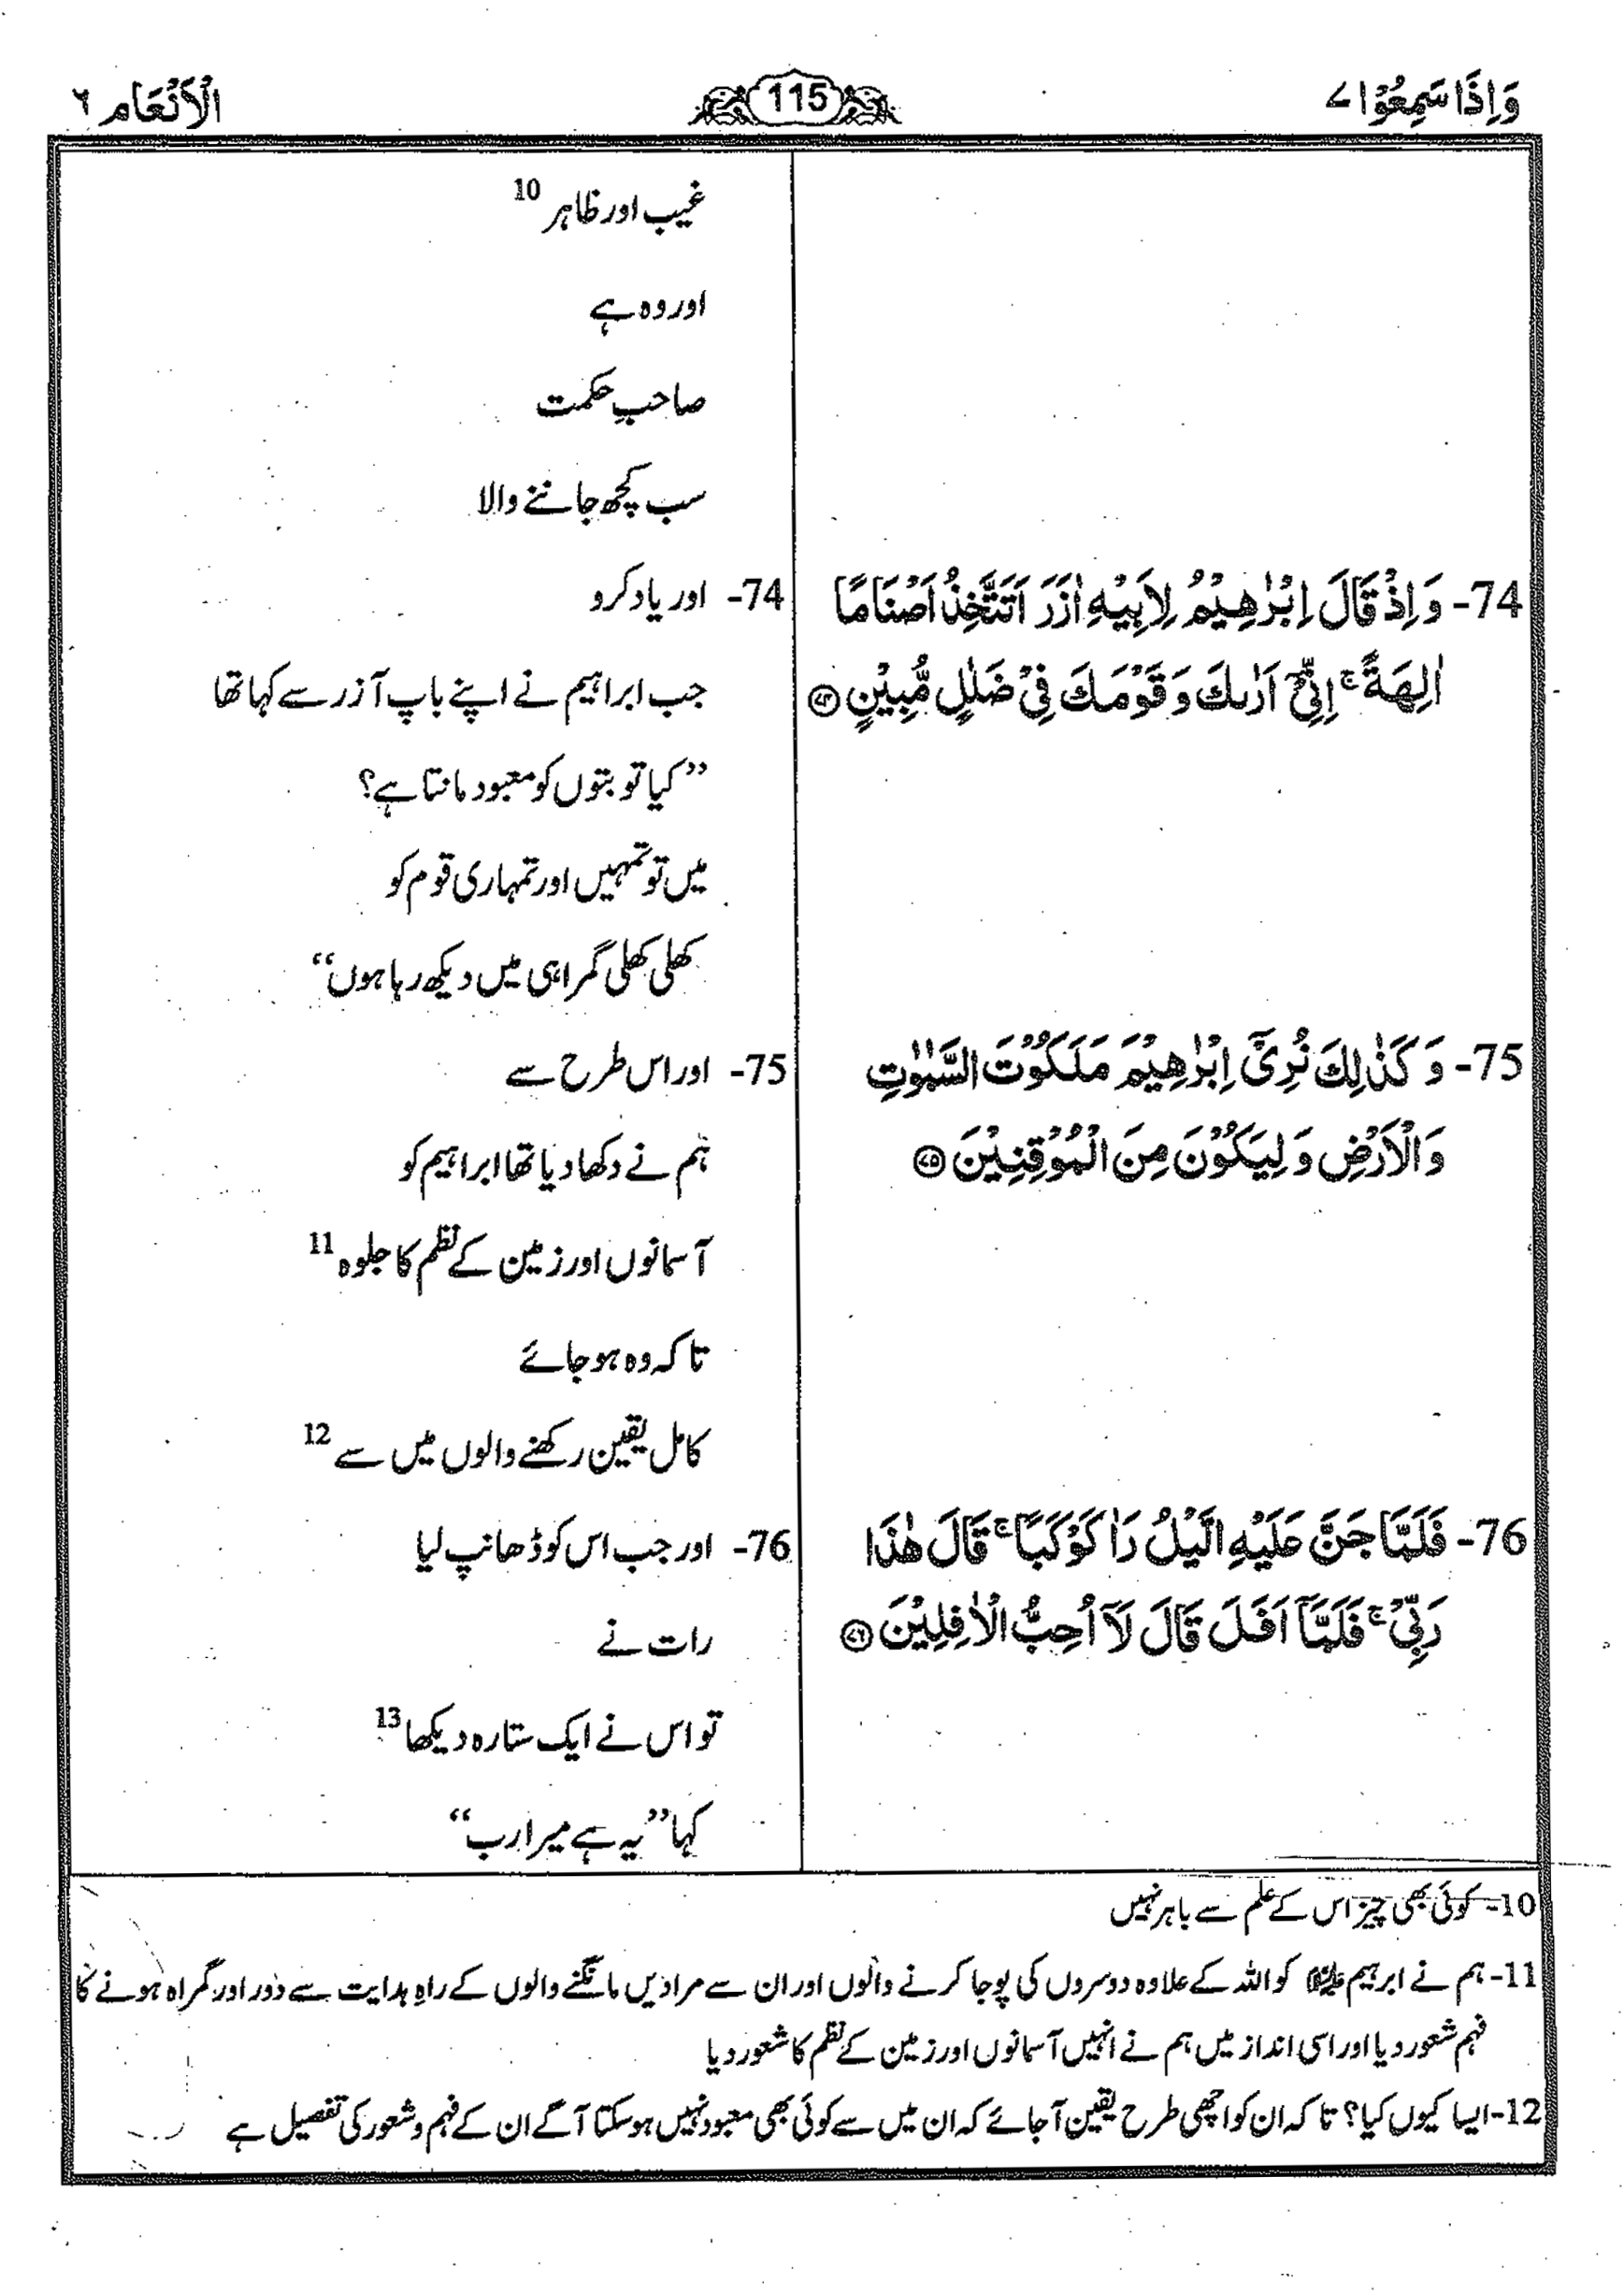 وَاِذَا سَمِعُوْا ٧
115
الْاَنْعَام ٦
74- وَ اِذْ قَالَ اِبْرٰهِيْمُ لِاَبِيْهِ اٰزَرَ اَتَتَّخِذُ اَصْنَامًا
اٰلِهَةً ۚ اِنِّيْٓ اَرٰىكَ وَ قَوْمَكَ فِيْ ضَلٰلٍ مُّبِيْنٍ ۝٧٤
75- وَ كَذٰلِكَ نُرِيْٓ اِبْرٰهِيْمَ مَلَكُوْتَ السَّمٰوٰتِ
وَالْاَرْضِ وَ لِيَكُوْنَ مِنَ الْمُوْقِنِيْنَ ۝٧٥
76- فَلَمَّا جَنَّ عَلَيْهِ الَّيْلُ رَاٰ كَوْكَبًا ۚ قَالَ هٰذَا
رَبِّيْ ۚ فَلَمَّآ اَفَلَ قَالَ لَآ اُحِبُّ الْاٰفِلِيْنَ ۝٧٦
غیب اور ظاہر 10
اور وہ ہے
صاحبِ حکمت
سب کچھ جاننے والا
74- اور یاد کرو
جب ابراہیم نے اپنے باپ آزر سے کہا تھا
”کیا تو بتوں کو معبود مانتا ہے؟
میں تو تمہیں اور تمہاری قوم کو
کھلی کھلی گمراہی میں دیکھ رہا ہوں“
75- اور اس طرح سے
ہم نے دکھا دیا تھا ابراہیم کو
آسمانوں اور زمین کے نظم کا جلوہ 11
تاکہ وہ ہو جائے
کامل یقین رکھنے والوں میں سے 12
76- اور جب اس کو ڈھانپ لیا
رات نے
تو اس نے ایک ستارہ دیکھا 13
کہا ”یہ ہے میرا رب“
10- کوئی بھی چیز اس کے علم سے باہر نہیں
11- ہم نے ابرہیم علیہ السلام کو اللہ کے علاوہ دوسروں کی پوجا کرنے والوں اور ان سے مرادیں مانگنے والوں کے راہِ ہدایت سے دور اور گمراہ ہونے کا
فہم شعور دیا اور اسی انداز میں ہم نے انہیں آسمانوں اور زمین کے نظم کا شعور دیا
12- ایسا کیوں کیا؟ تاکہ ان کو اچھی طرح یقین آجائے کہ ان میں سے کوئی بھی معبود نہیں ہوسکتا آگے ان کے فہم و شعور کی تفصیل ہے